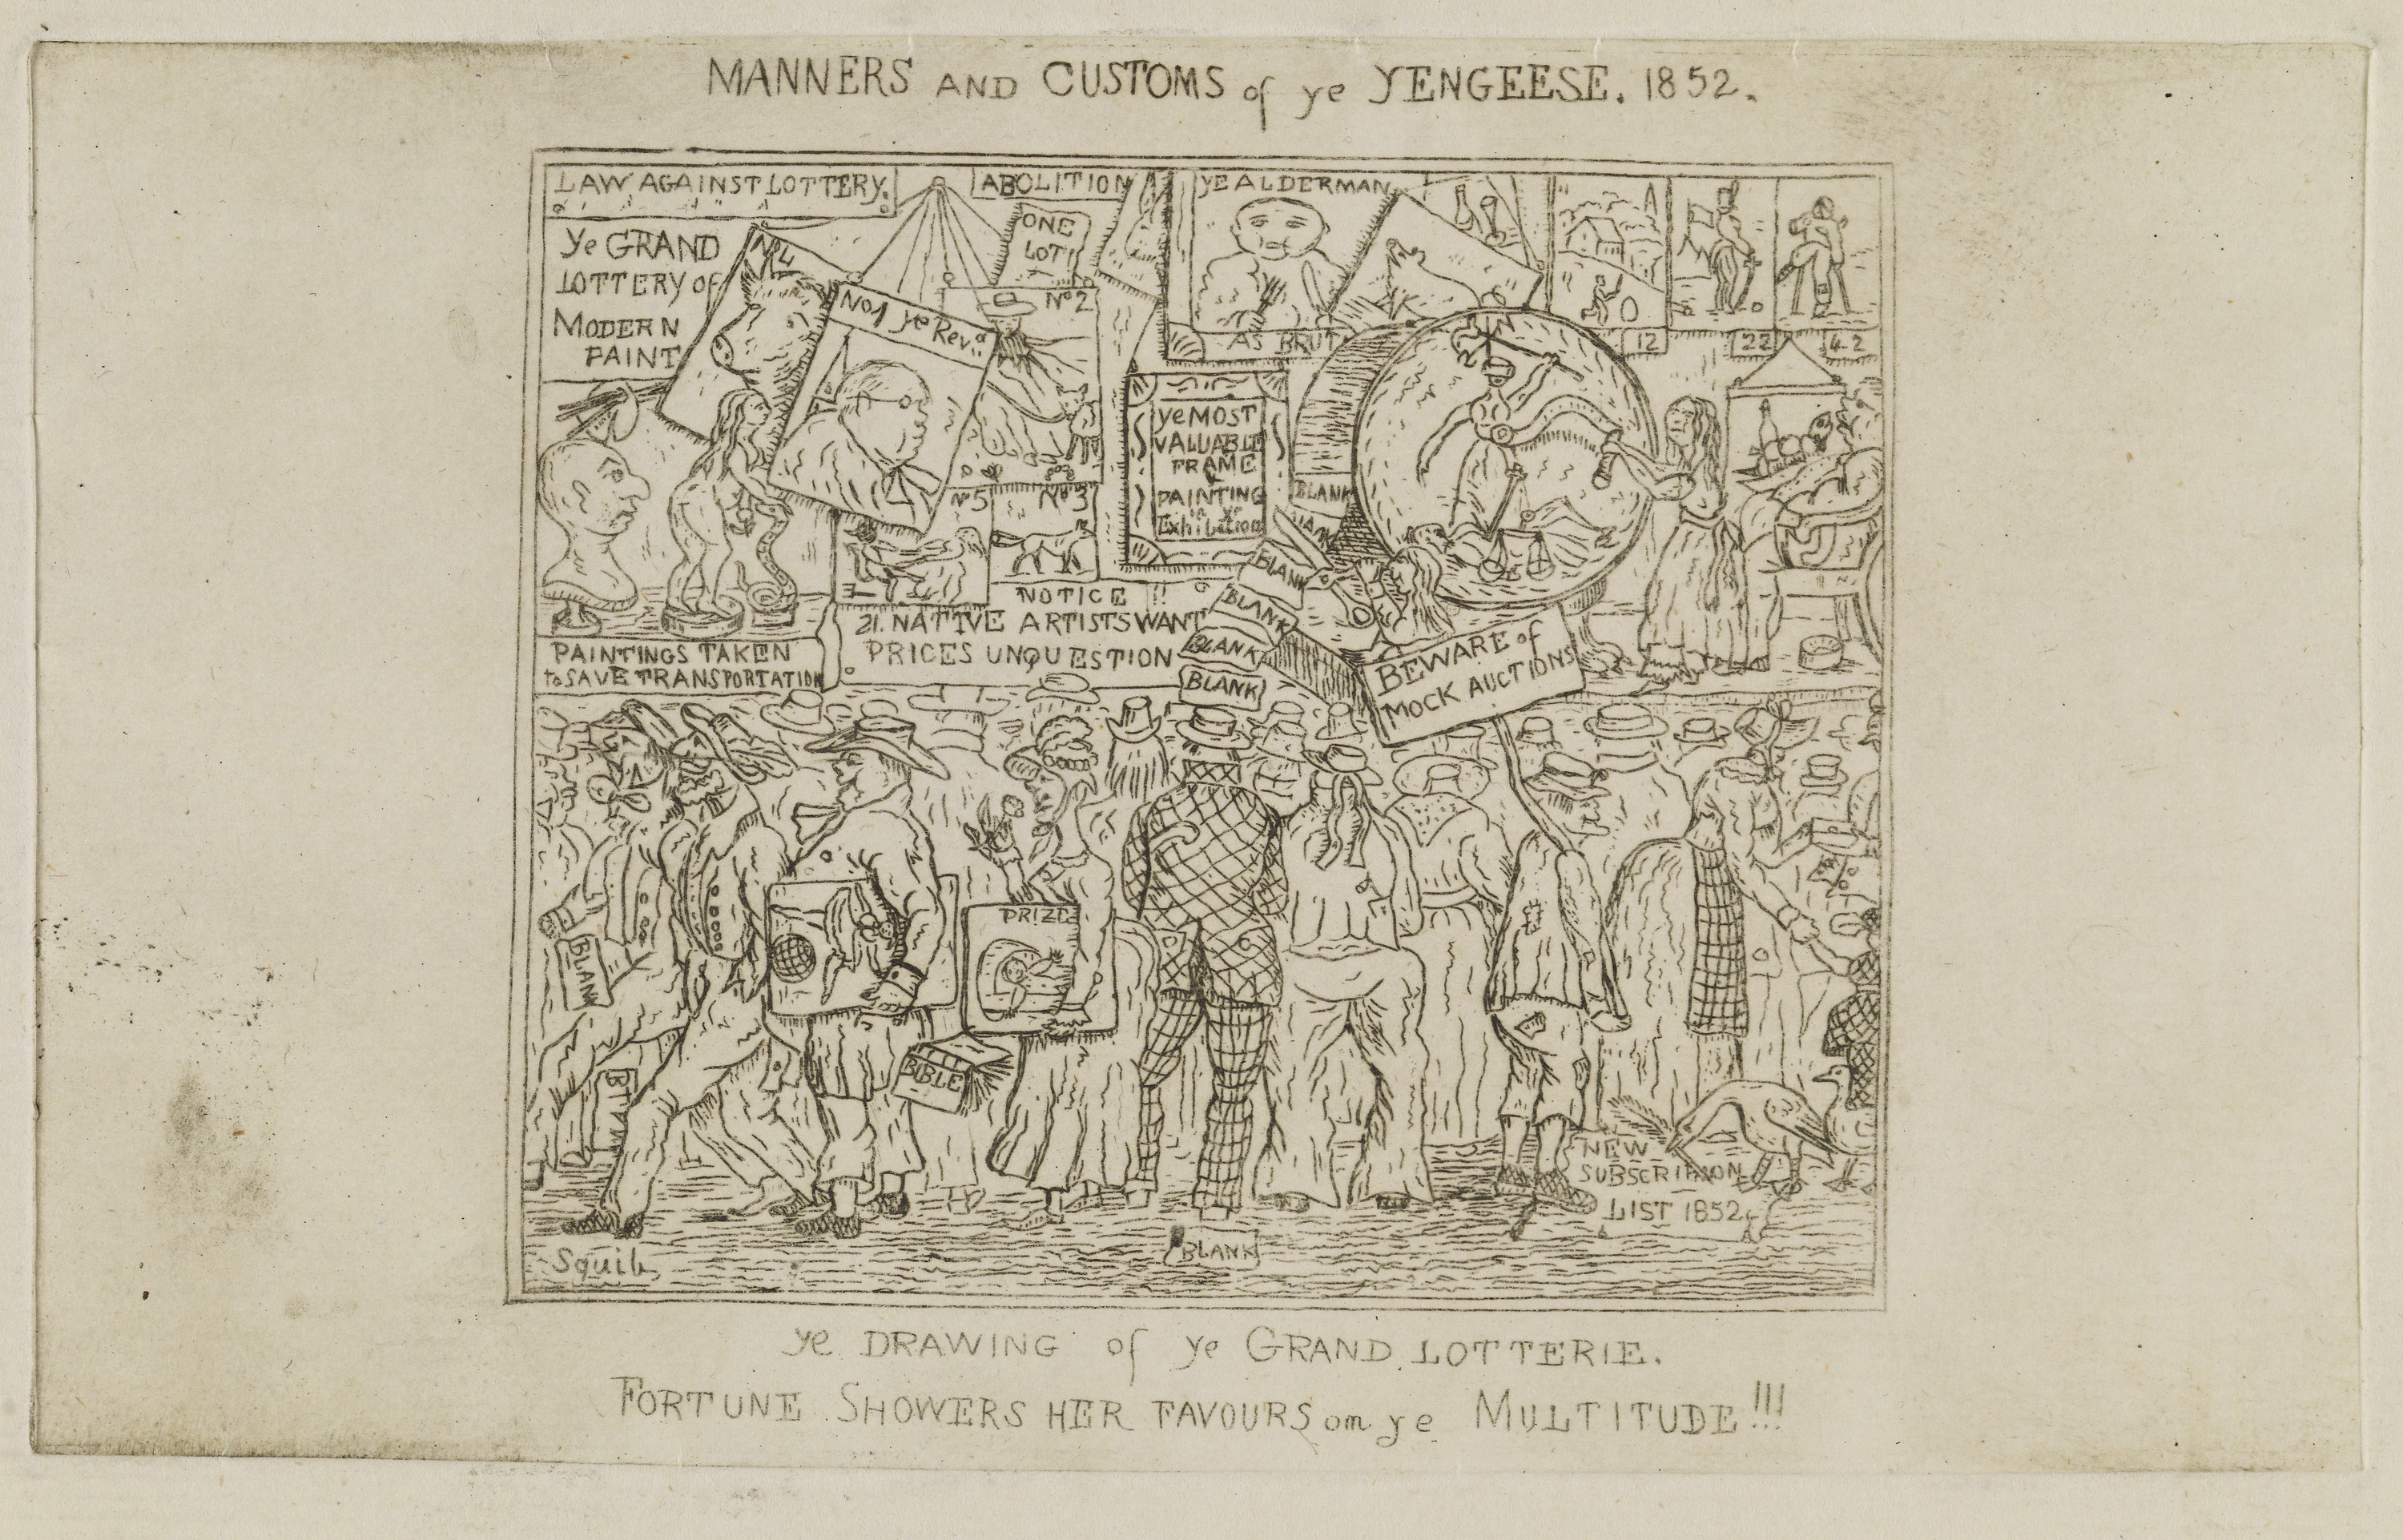 MANNERS AND CUSTOMS of ye YENGEESE. 1852.
LAW AGAINST LOTTERY.
ABOLITION
ye ALDERMAN
ONE
LOT!
Ye GRAND
LOTTERY of
MODERN
PAINT
No 4
No 1 ye Revd
No 2
AS BRUT
12
22
42
ye MOST
VALUABLE
FRAME
&
PAINTING
in ye
Exhibition
No 5
No 3
BLANK
BLANK
BLANK
BLANK
BLANK
NOTICE !!
21. NATIVE ARTISTS WANT
PRICES UNQUESTION
PAINTINGS TAKEN
to SAVE TRANSPORTATION
BEWARE of
MOCK AUCTIONS
PRIZE
BLANK
BIBLE
BLANK
NEW
SUBSCRIPTION
LIST 1852
BLANK
Squib
ye DRAWING of ye GRAND LOTTERIE.
FORTUNE SHOWERS HER FAVOURS on ye MULTITUDE!!!